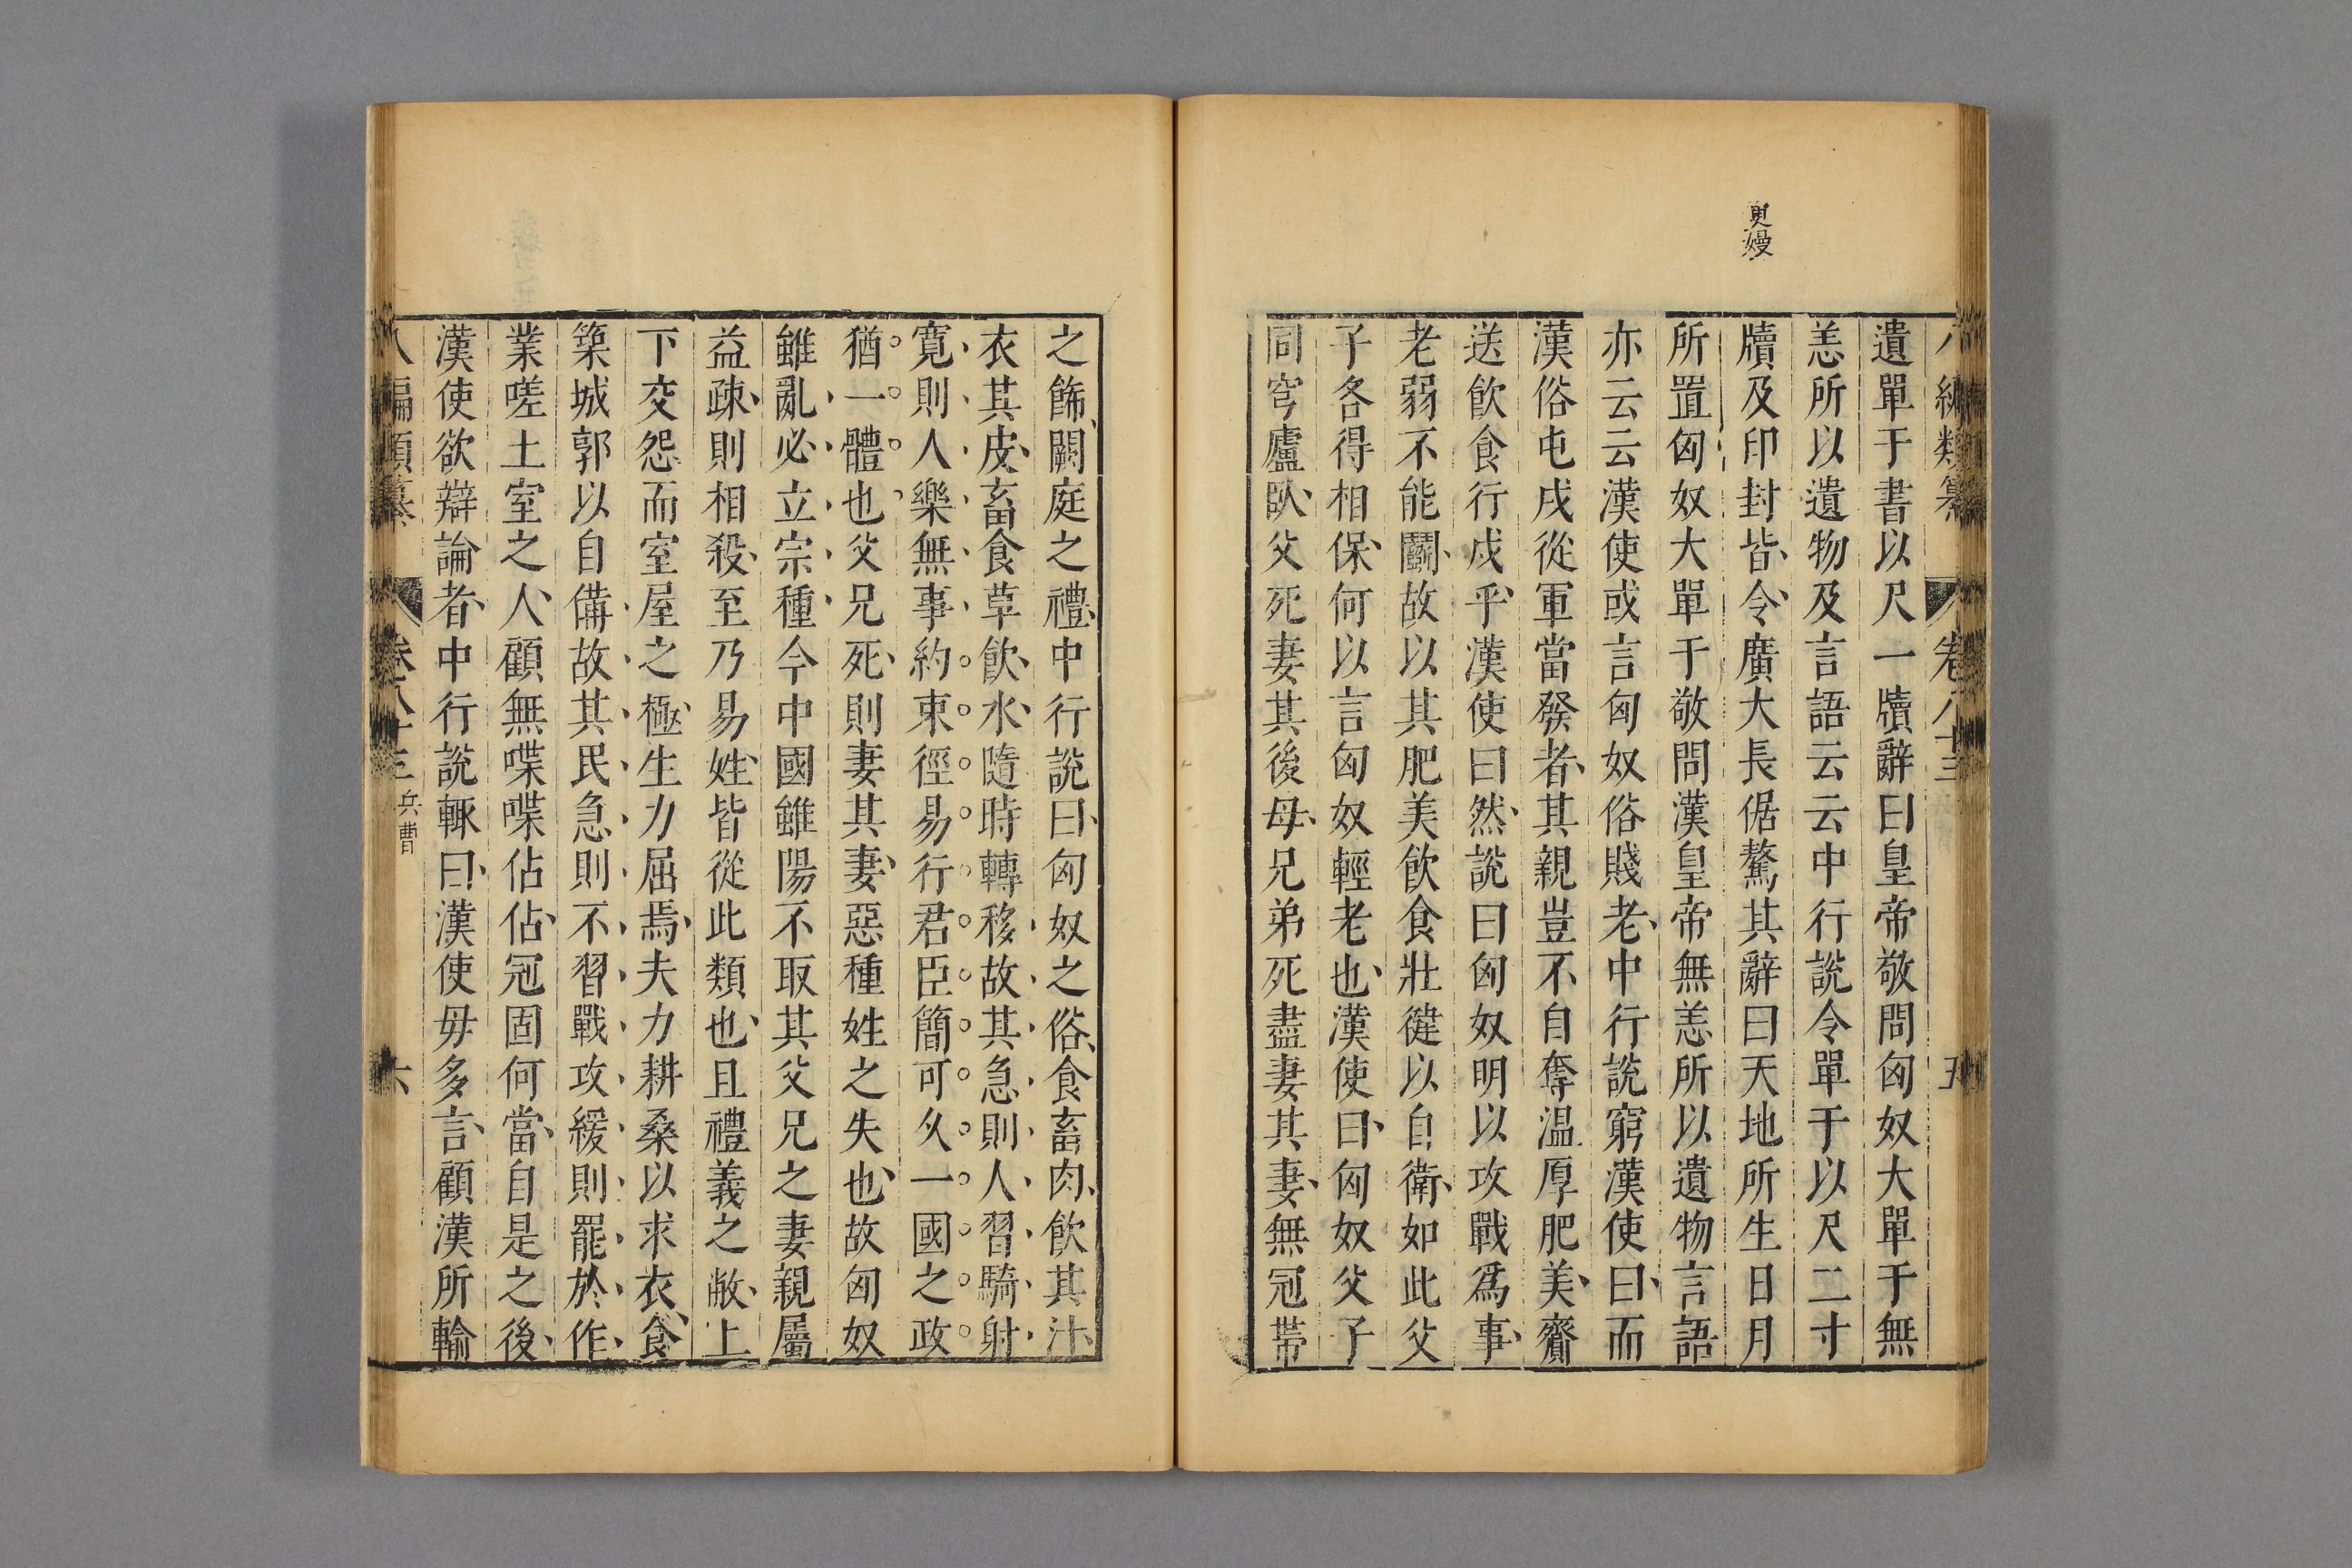 更嫚
遺單于書以尺一牘辭曰皇帝敬問匈奴大單于無
恙所以遺物及言語云云中行說令單于以尺二寸
牘及印封皆令廣大長倨驁其辭曰天地所生日月
所置匈奴大單于敬問漢皇帝無恙所以遺物言語
亦云云漢使或言匈奴俗賤老中行說窮漢使曰而
漢俗屯戍從軍當發者其親豈不自奪温厚肥美齎
送飲食行戍乎漢使曰然說曰匈奴明以攻戰爲事
老弱不能鬭故以其肥美飲食壯健以自衛如此父
子各得相保何以言匈奴輕老也漢使曰匈奴父子
同穹廬臥父死妻其後母兄弟死盡妻其妻無冠帶
之飾闕庭之禮中行說曰匈奴之俗食畜肉飲其汁
衣其皮畜食草飲水隨時轉移故其急則人習騎射
寬則人樂無事約束徑易行君臣簡可久一國之政
猶一體也父兄死則妻其妻惡種姓之失也故匈奴
雖亂必立宗種今中國雖陽不取其父兄之妻親屬
益疎則相殺至乃易姓皆從此類也且禮義之敝上
下交怨而室屋之極生力屈焉夫力耕桑以求衣食
築城郭以自備故其民急則不習戰攻緩則罷於作
業嗟土室之人顧無喋喋佔佔冠固何當自是之後
漢使欲辯論者中行說輒曰漢使毋多言顧漢所輸
八編類纂 卷八十三 兵曹 六